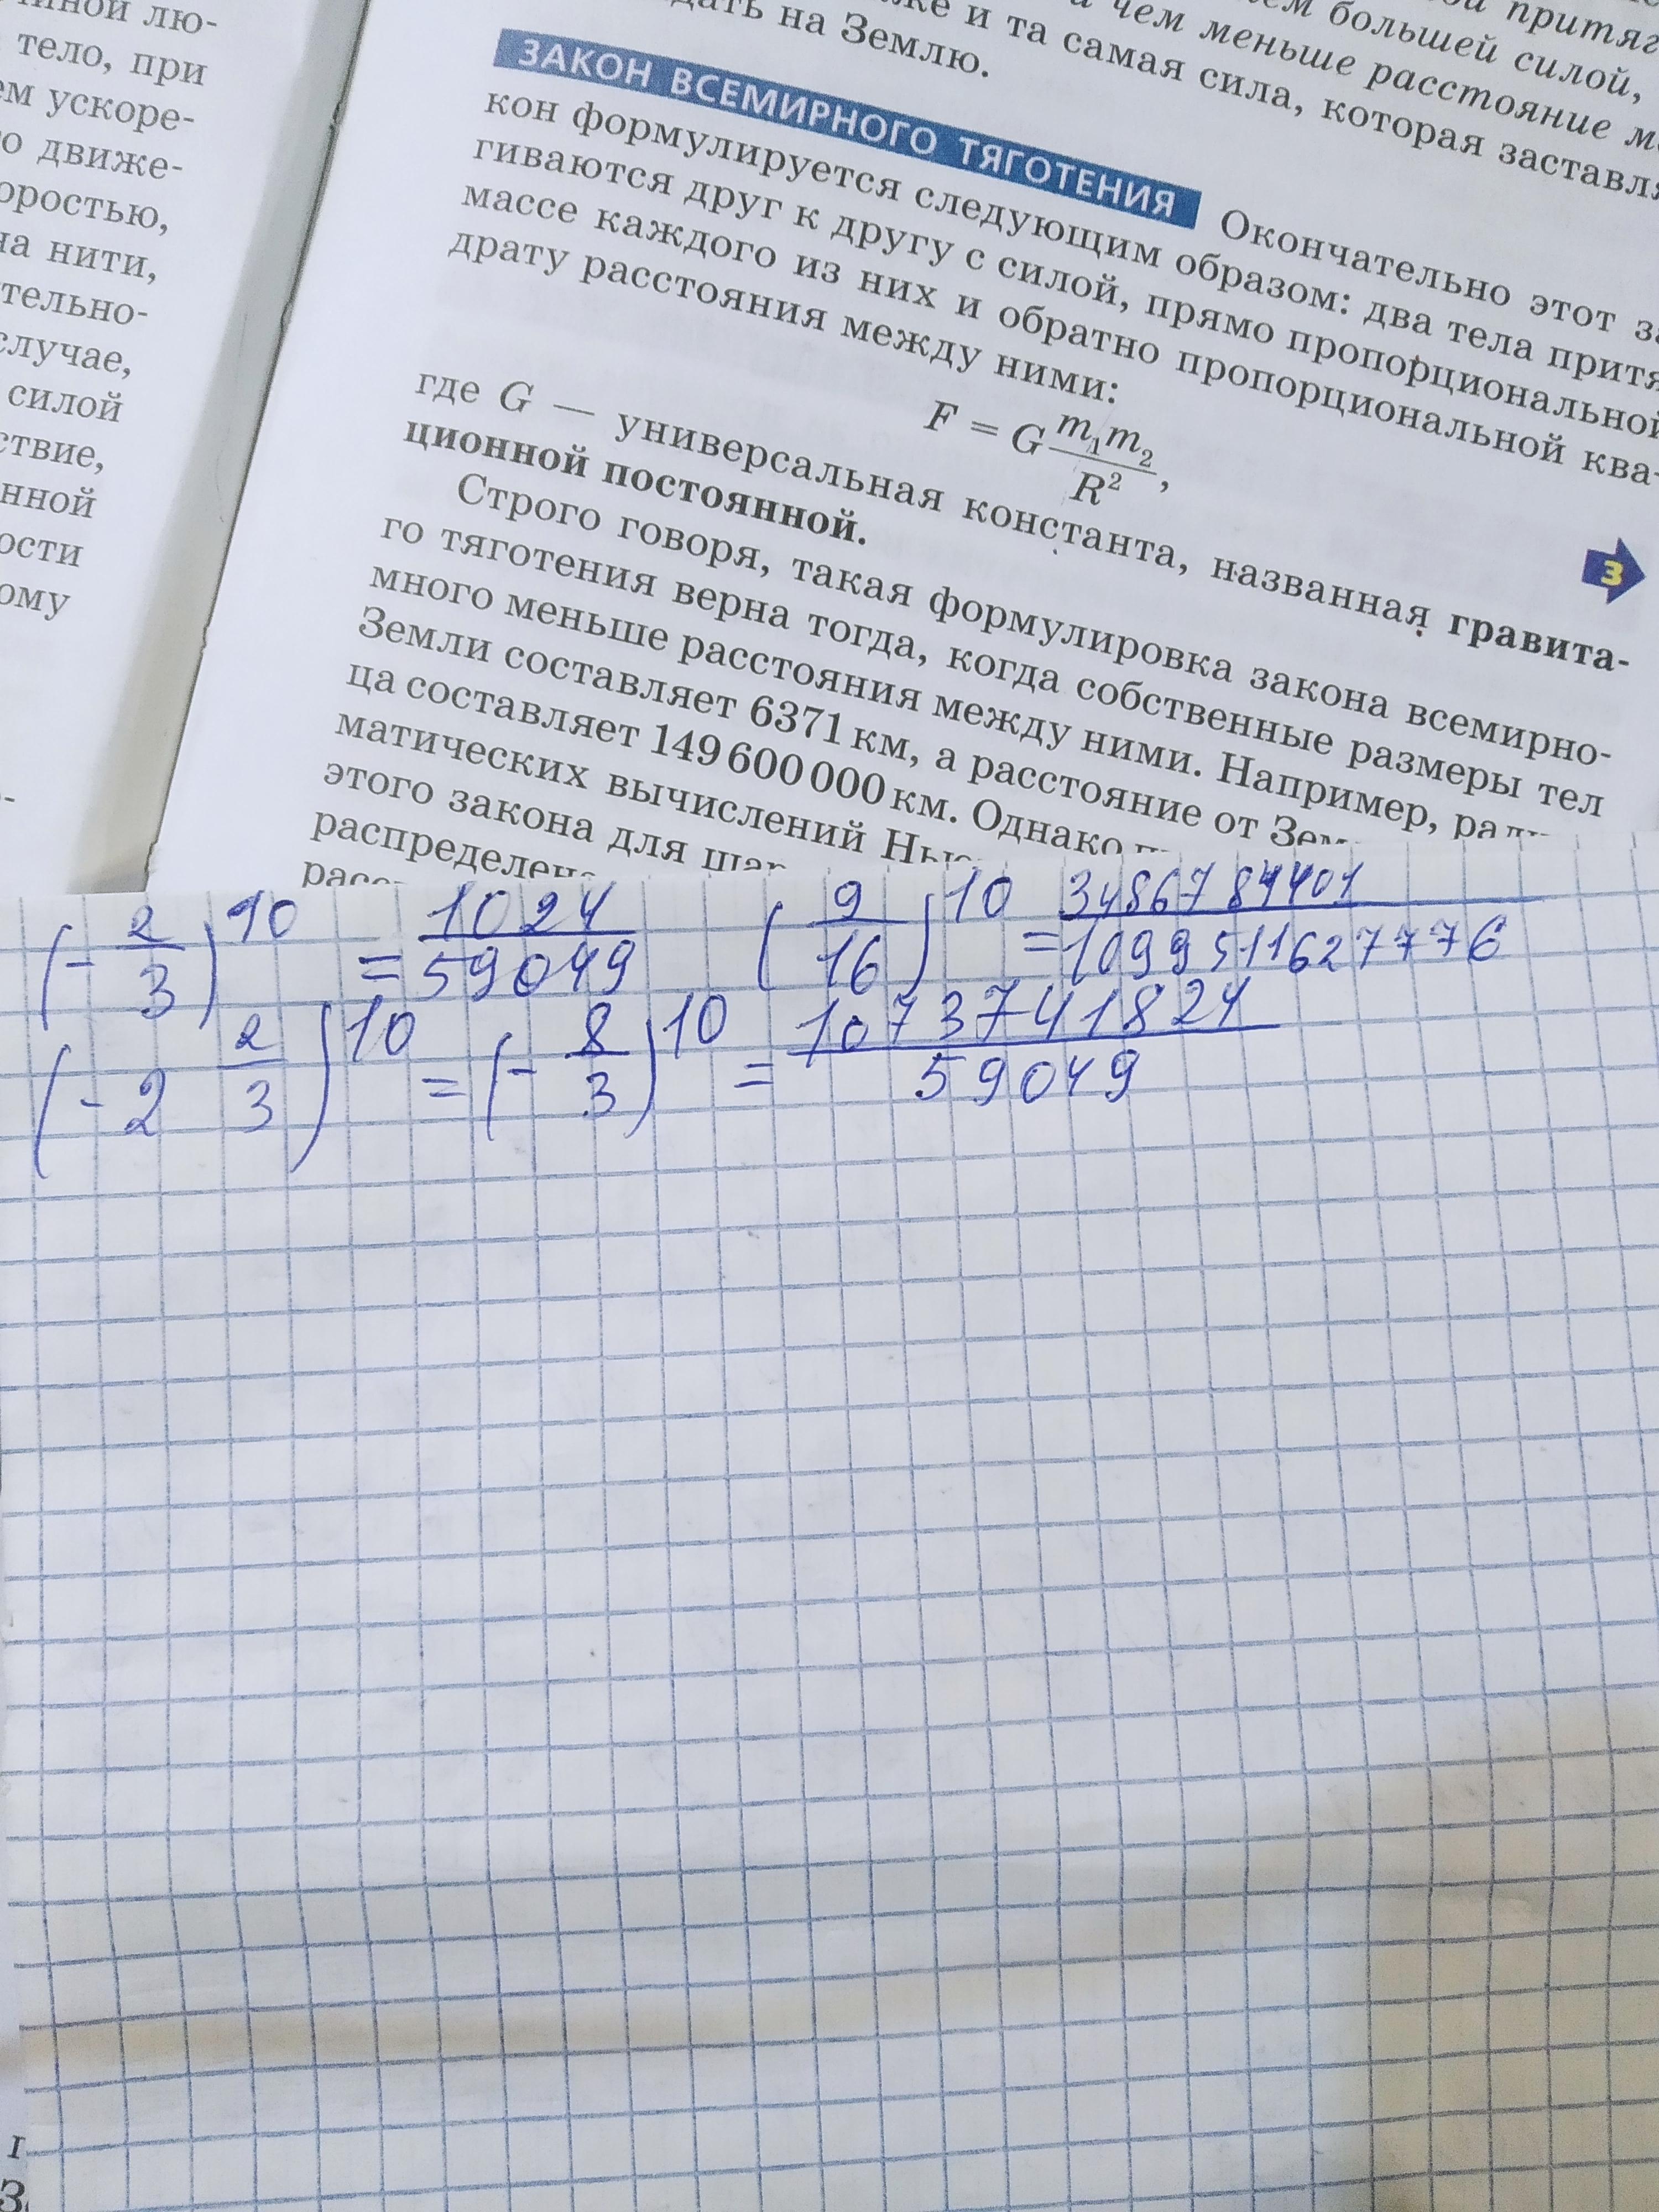 иной лю-
тело, при
ем ускоре-
о движе-
оростью,
на нити,
тельно-
случае,
силой
ствие,
нной
ости
ому
ой притяг
ем большей силой,
а чем меньше расстояние м
же и та самая сила, которая заставля
дать на Землю.
ЗАКОН ВСЕМИРНОГО ТЯГОТЕНИЯ Окончательно этот за
кон формулируется следующим образом: два тела притя
гиваются друг к другу с силой, прямо пропорциональной
массе каждого из них и обратно пропорциональной ква-
драту расстояния между ними:
F = G m₁m₂ / R²,
3
где G — универсальная константа, названная гравита-
ционной постоянной.
Строго говоря, такая формулировка закона всемирно-
го тяготения верна тогда, когда собственные размеры тел
много меньше расстояния между ними. Например, ради
Земли составляет 6371 км, а расстояние от Зем
ца составляет 149 600 000 км. Однако п
матических вычислений Нью
этого закона для шар
распределена
расс
(-2/3)^10 = 1024/59049 (9/16)^10 = 3486784401/1099511627776
(-2 2/3)^10 = (-8/3)^10 = 1073741824/59049